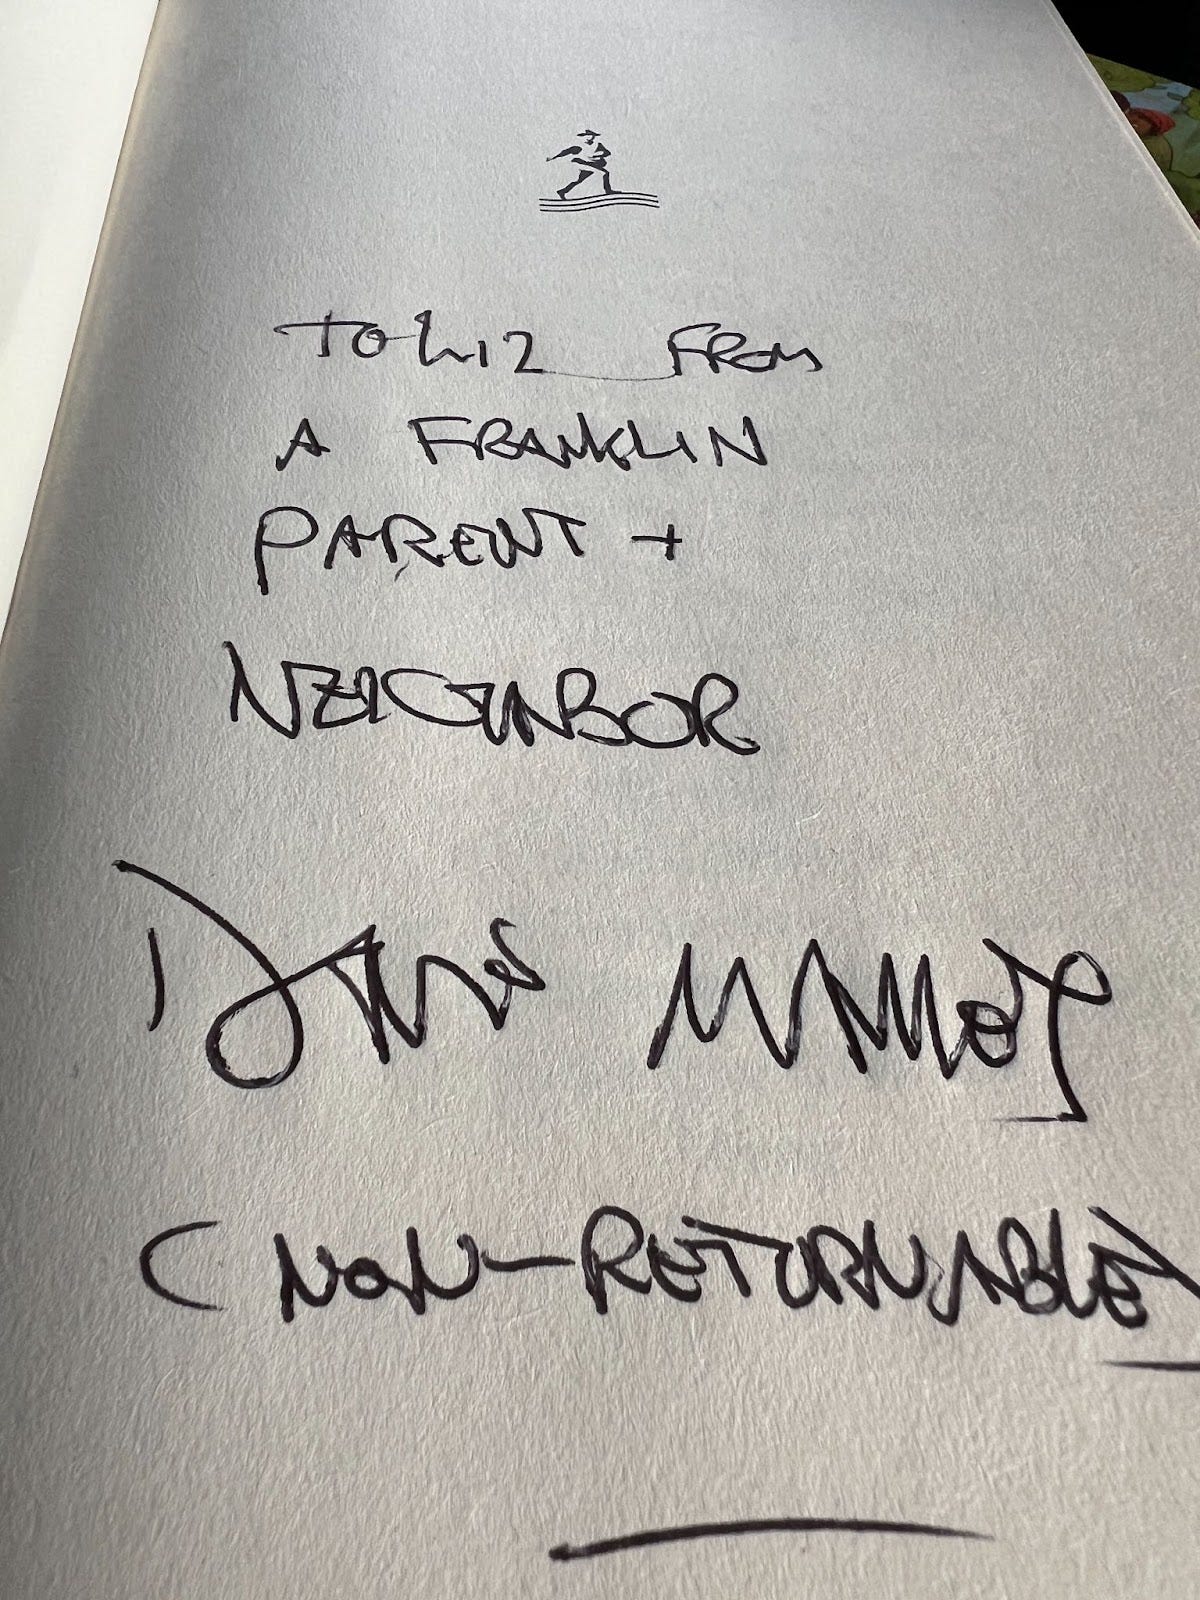 TO LIZ FROM
A FRANKLIN
PARENT +
NEIGHBOR
(NON-RETURNABLE)